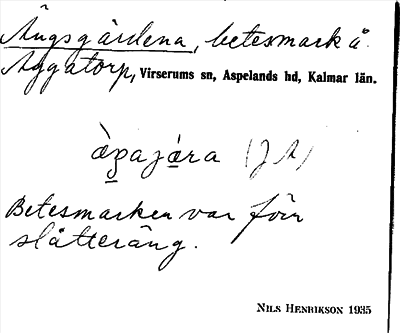 Ängsgärdena, betesmark å
Aggatorp, Virserums sn, Aspelands hd, Kalmar län.
(J A)
Betesmarken var förr
slåtteräng.
NILS HENRIKSON 1935